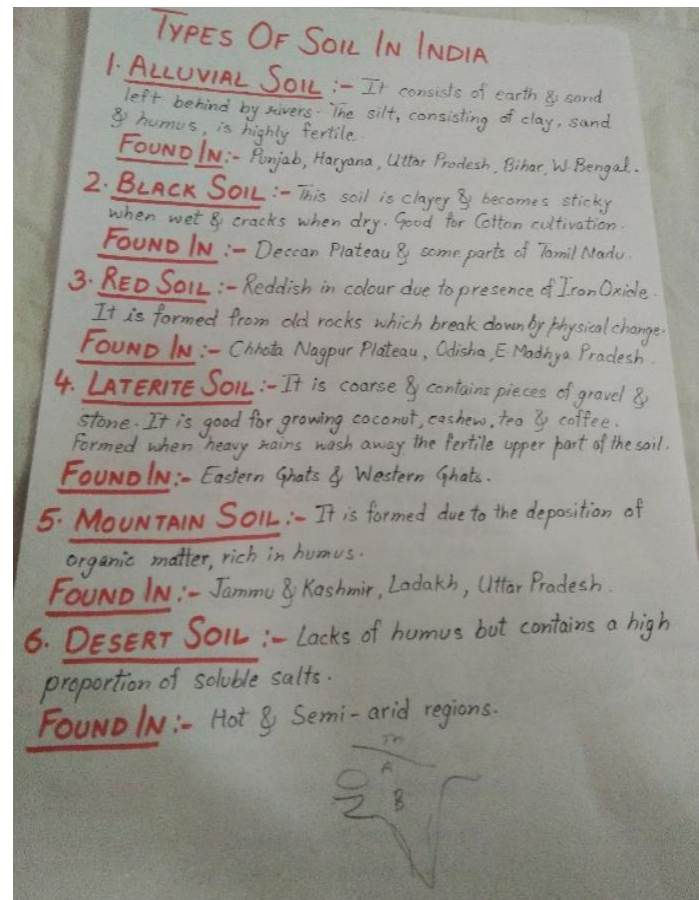 TYPES OF SOIL IN INDIA
1. ALLUVIAL SOIL :- It consists of earth & sand
left behind by rivers. The silt, consisting of clay, sand
& humus, is highly fertile.
FOUND IN:- Punjab, Haryana, Uttar Pradesh, Bihar, W. Bengal.
2. BLACK SOIL :- This soil is clayey & becomes sticky
when wet & cracks when dry. Good for Cotton cultivation.
FOUND IN :- Deccan Plateau & some parts of Tamil Nadu.
3. RED SOIL :- Reddish in colour due to presence of Iron Oxide.
It is formed from old rocks which break down by physical change.
FOUND IN :- Chhota Nagpur Plateau, Odisha, E. Madhya Pradesh.
4. LATERITE SOIL :- It is coarse & contains pieces of gravel &
stone. It is good for growing coconut, cashew, tea & coffee.
Formed when heavy rains wash away the fertile upper part of the soil.
FOUND IN :- Eastern Ghats & Western Ghats.
5. MOUNTAIN SOIL :- It is formed due to the deposition of
organic matter, rich in humus.
FOUND IN :- Jammu & Kashmir, Ladakh, Uttar Pradesh.
6. DESERT SOIL :- Lacks of humus but contains a high
proportion of soluble salts.
FOUND IN :- Hot & Semi-arid regions.
A
B